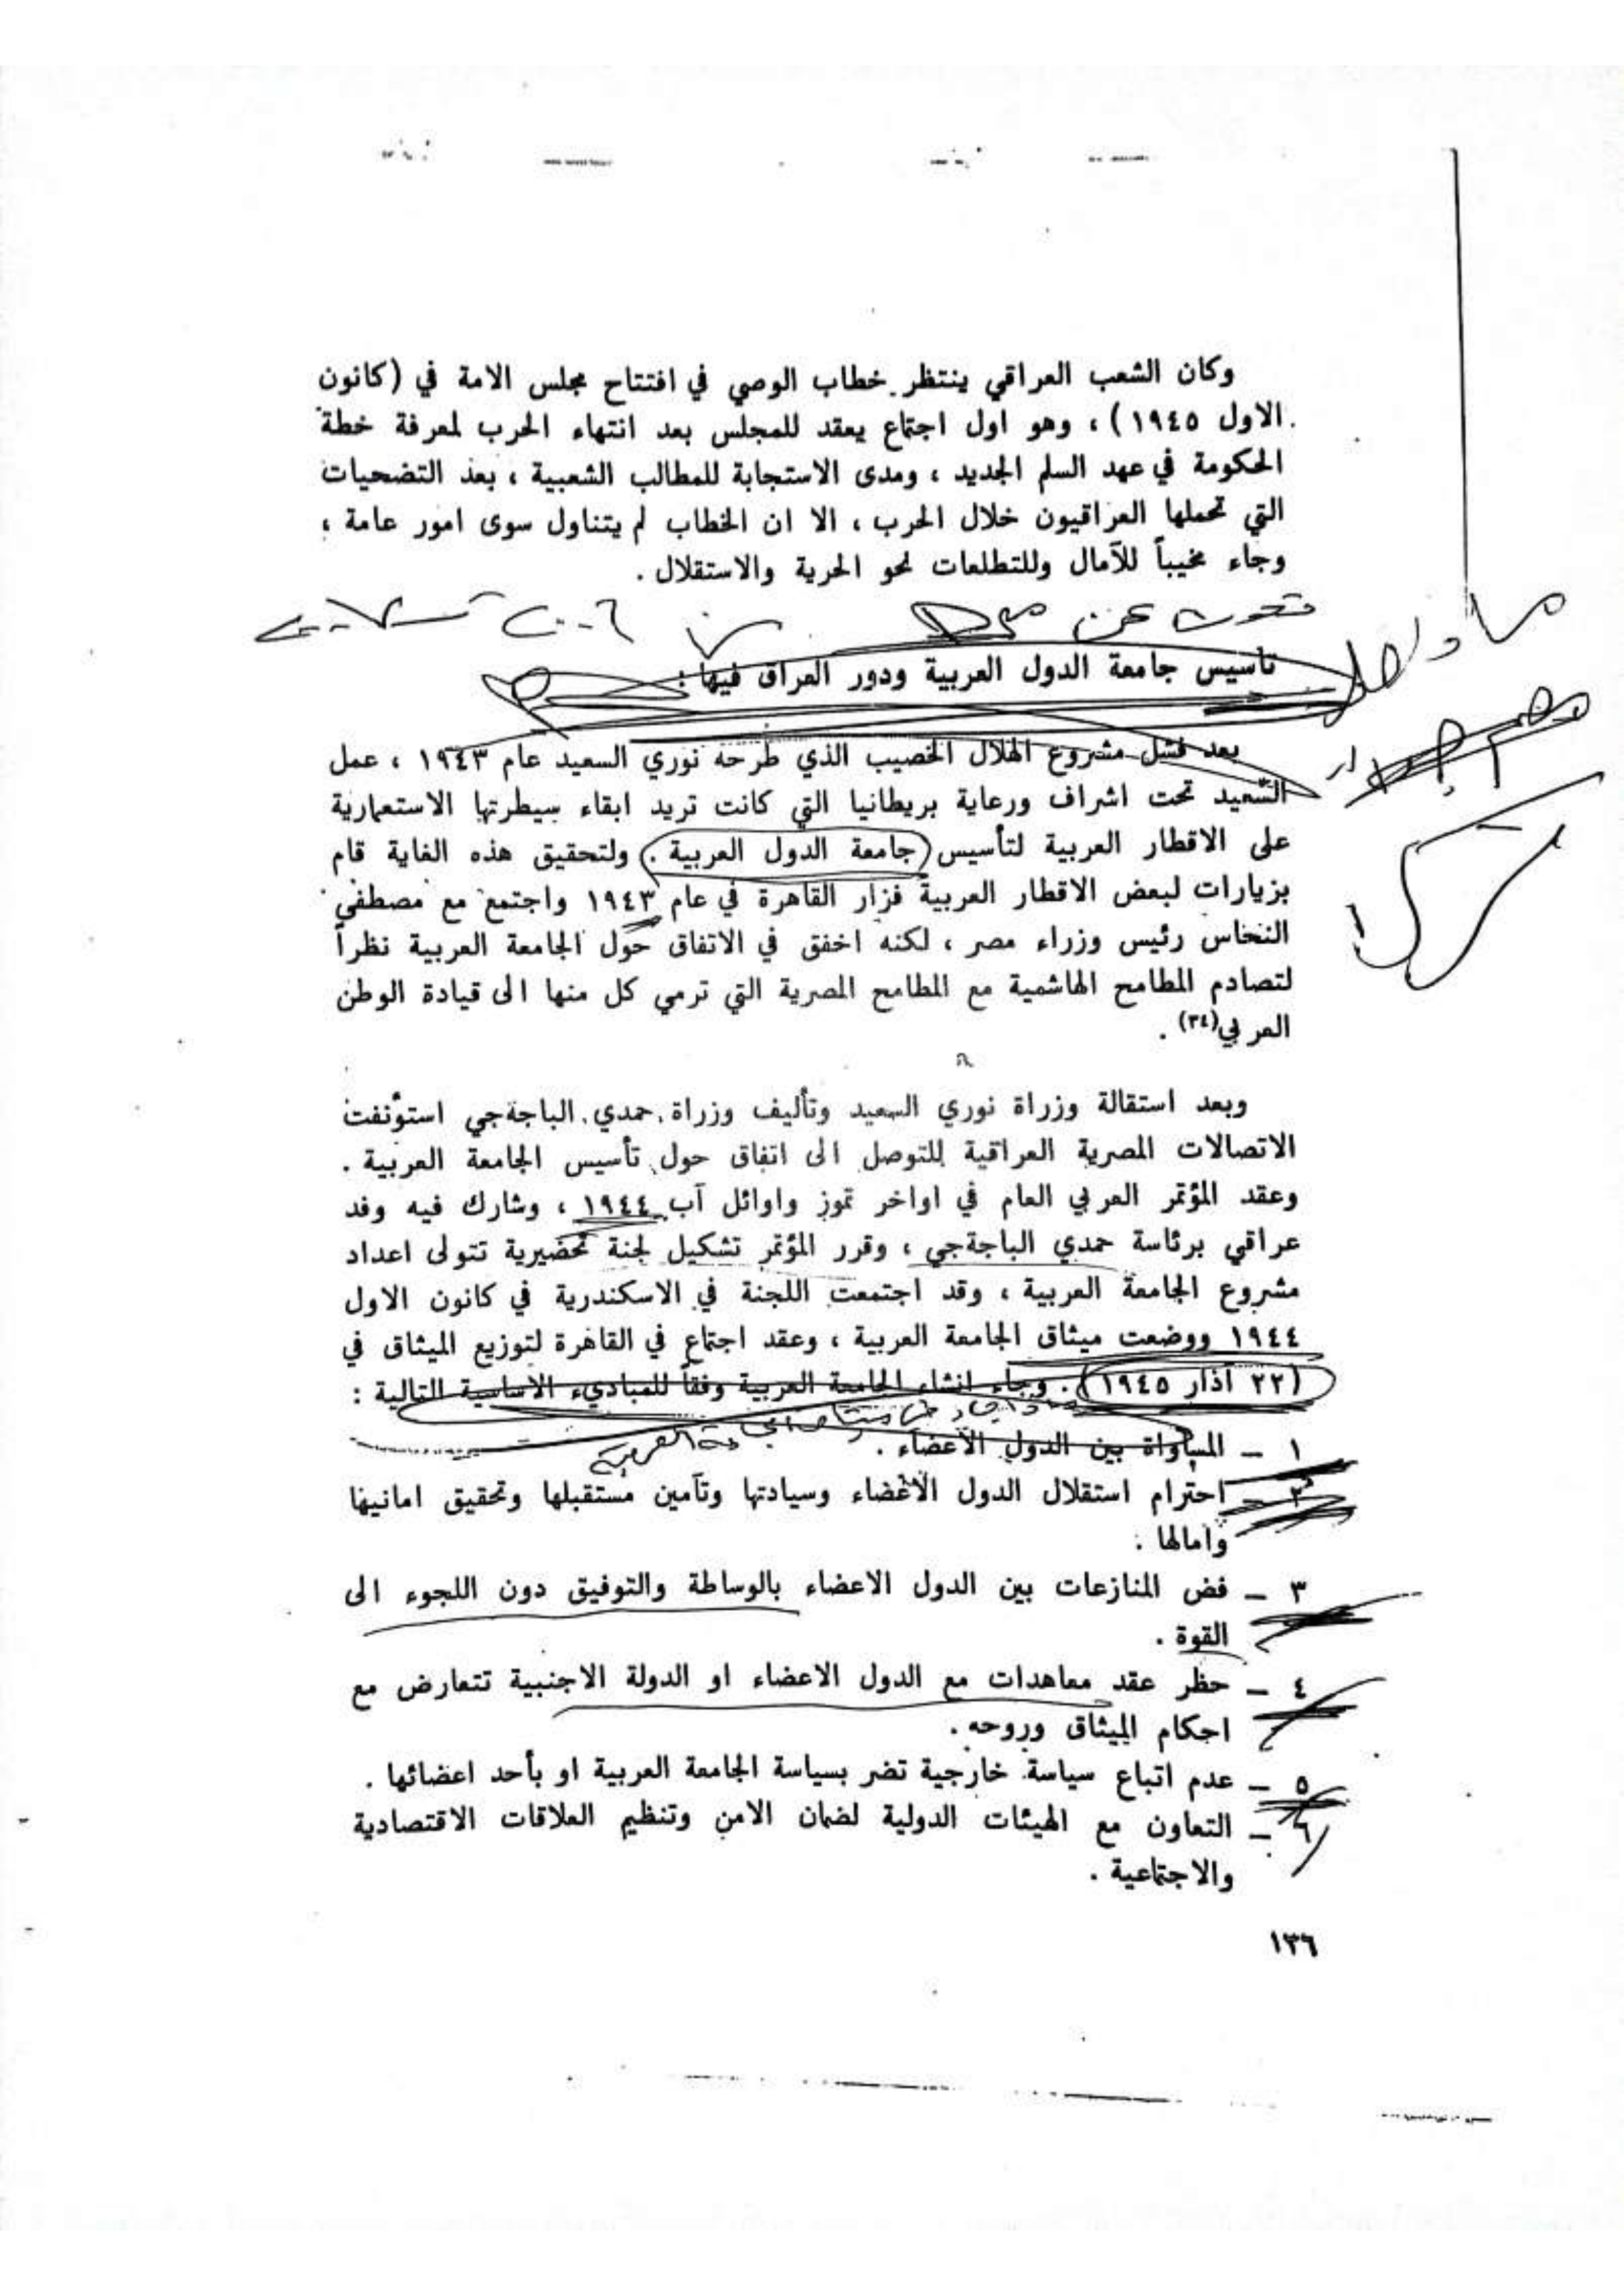 وكان الشعب العراقي ينتظر خطاب الوصي في افتتاح مجلس الامة في (كانون
الاول ١٩٤٥) ، وهو اول اجتماع يعقد للمجلس بعد انتهاء الحرب لمعرفة خطة
الحكومة في عهد السلم الجديد ، ومدى الاستجابة للمطالب الشعبية ، بعد التضحيات
التي تحملها العراقيون خلال الحرب ، الا ان الخطاب لم يتناول سوى امور عامة ،
وجاء مخيباً للآمال وللتطلعات نحو الحرية والاستقلال .
تأسيس جامعة الدول العربية ودور العراق فيها :
بعد فشل مشروع الهلال الخصيب الذي طرحه نوري السعيد عام ١٩٤٣ ، عمل
السعيد تحت اشراف ورعاية بريطانيا التي كانت تريد ابقاء سيطرتها الاستعمارية
على الاقطار العربية لتأسيس (جامعة الدول العربية . ) ولتحقيق هذه الغاية قام
بزيارات لبعض الاقطار العربية فزار القاهرة في عام ١٩٤٣ واجتمع مع مصطفى
النحاس رئيس وزراء مصر ، لكنه اخفق في الاتفاق حول الجامعة العربية نظراً
لتصادم المطامح الهاشمية مع المطامح المصرية التي ترمي كل منها الى قيادة الوطن
العربي(٣٤) .
وبعد استقالة وزراة نوري السعيد وتأليف وزراة حمدي الباجةجي استؤنفت
الاتصالات المصرية العراقية للتوصل الى اتفاق حول تأسيس الجامعة العربية .
وعقد المؤتمر العربي العام في اواخر تموز واوائل آب ١٩٤٤ ، وشارك فيه وفد
عراقي برئاسة حمدي الباجةجي ، وقرر المؤتمر تشكيل لجنة تحضيرية تتولى اعداد
مشروع الجامعة العربية ، وقد اجتمعت اللجنة في الاسكندرية في كانون الاول
١٩٤٤ ووضعت ميثاق الجامعة العربية ، وعقد اجتماع في القاهرة لتوزيع الميثاق في
(٢٢ آذار ١٩٤٥) . وجاء انشاء الجامعة العربية وفقاً للمباديء الاساسية التالية :
١ – المساواة بين الدول الاعضاء .
٢ – احترام استقلال الدول الاعضاء وسيادتها وتأمين مستقبلها وتحقيق امانيها
وامالها .
٣ – فض المنازعات بين الدول الاعضاء بالوساطة والتوفيق دون اللجوء الى
القوة .
٤ – حظر عقد معاهدات مع الدول الاعضاء او الدولة الاجنبية تتعارض مع
احكام الميثاق وروحه .
٥ – عدم اتباع سياسة خارجية تضر بسياسة الجامعة العربية او بأحد اعضائها .
٦ – التعاون مع الهيئات الدولية لضمان الامن وتنظيم العلاقات الاقتصادية
والاجتماعية .
١٣٦